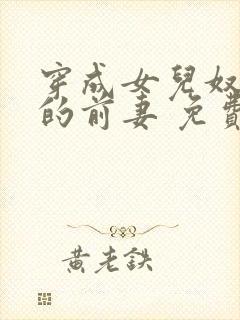 穿成女兒奴
的前妻 免費
黃老鉄